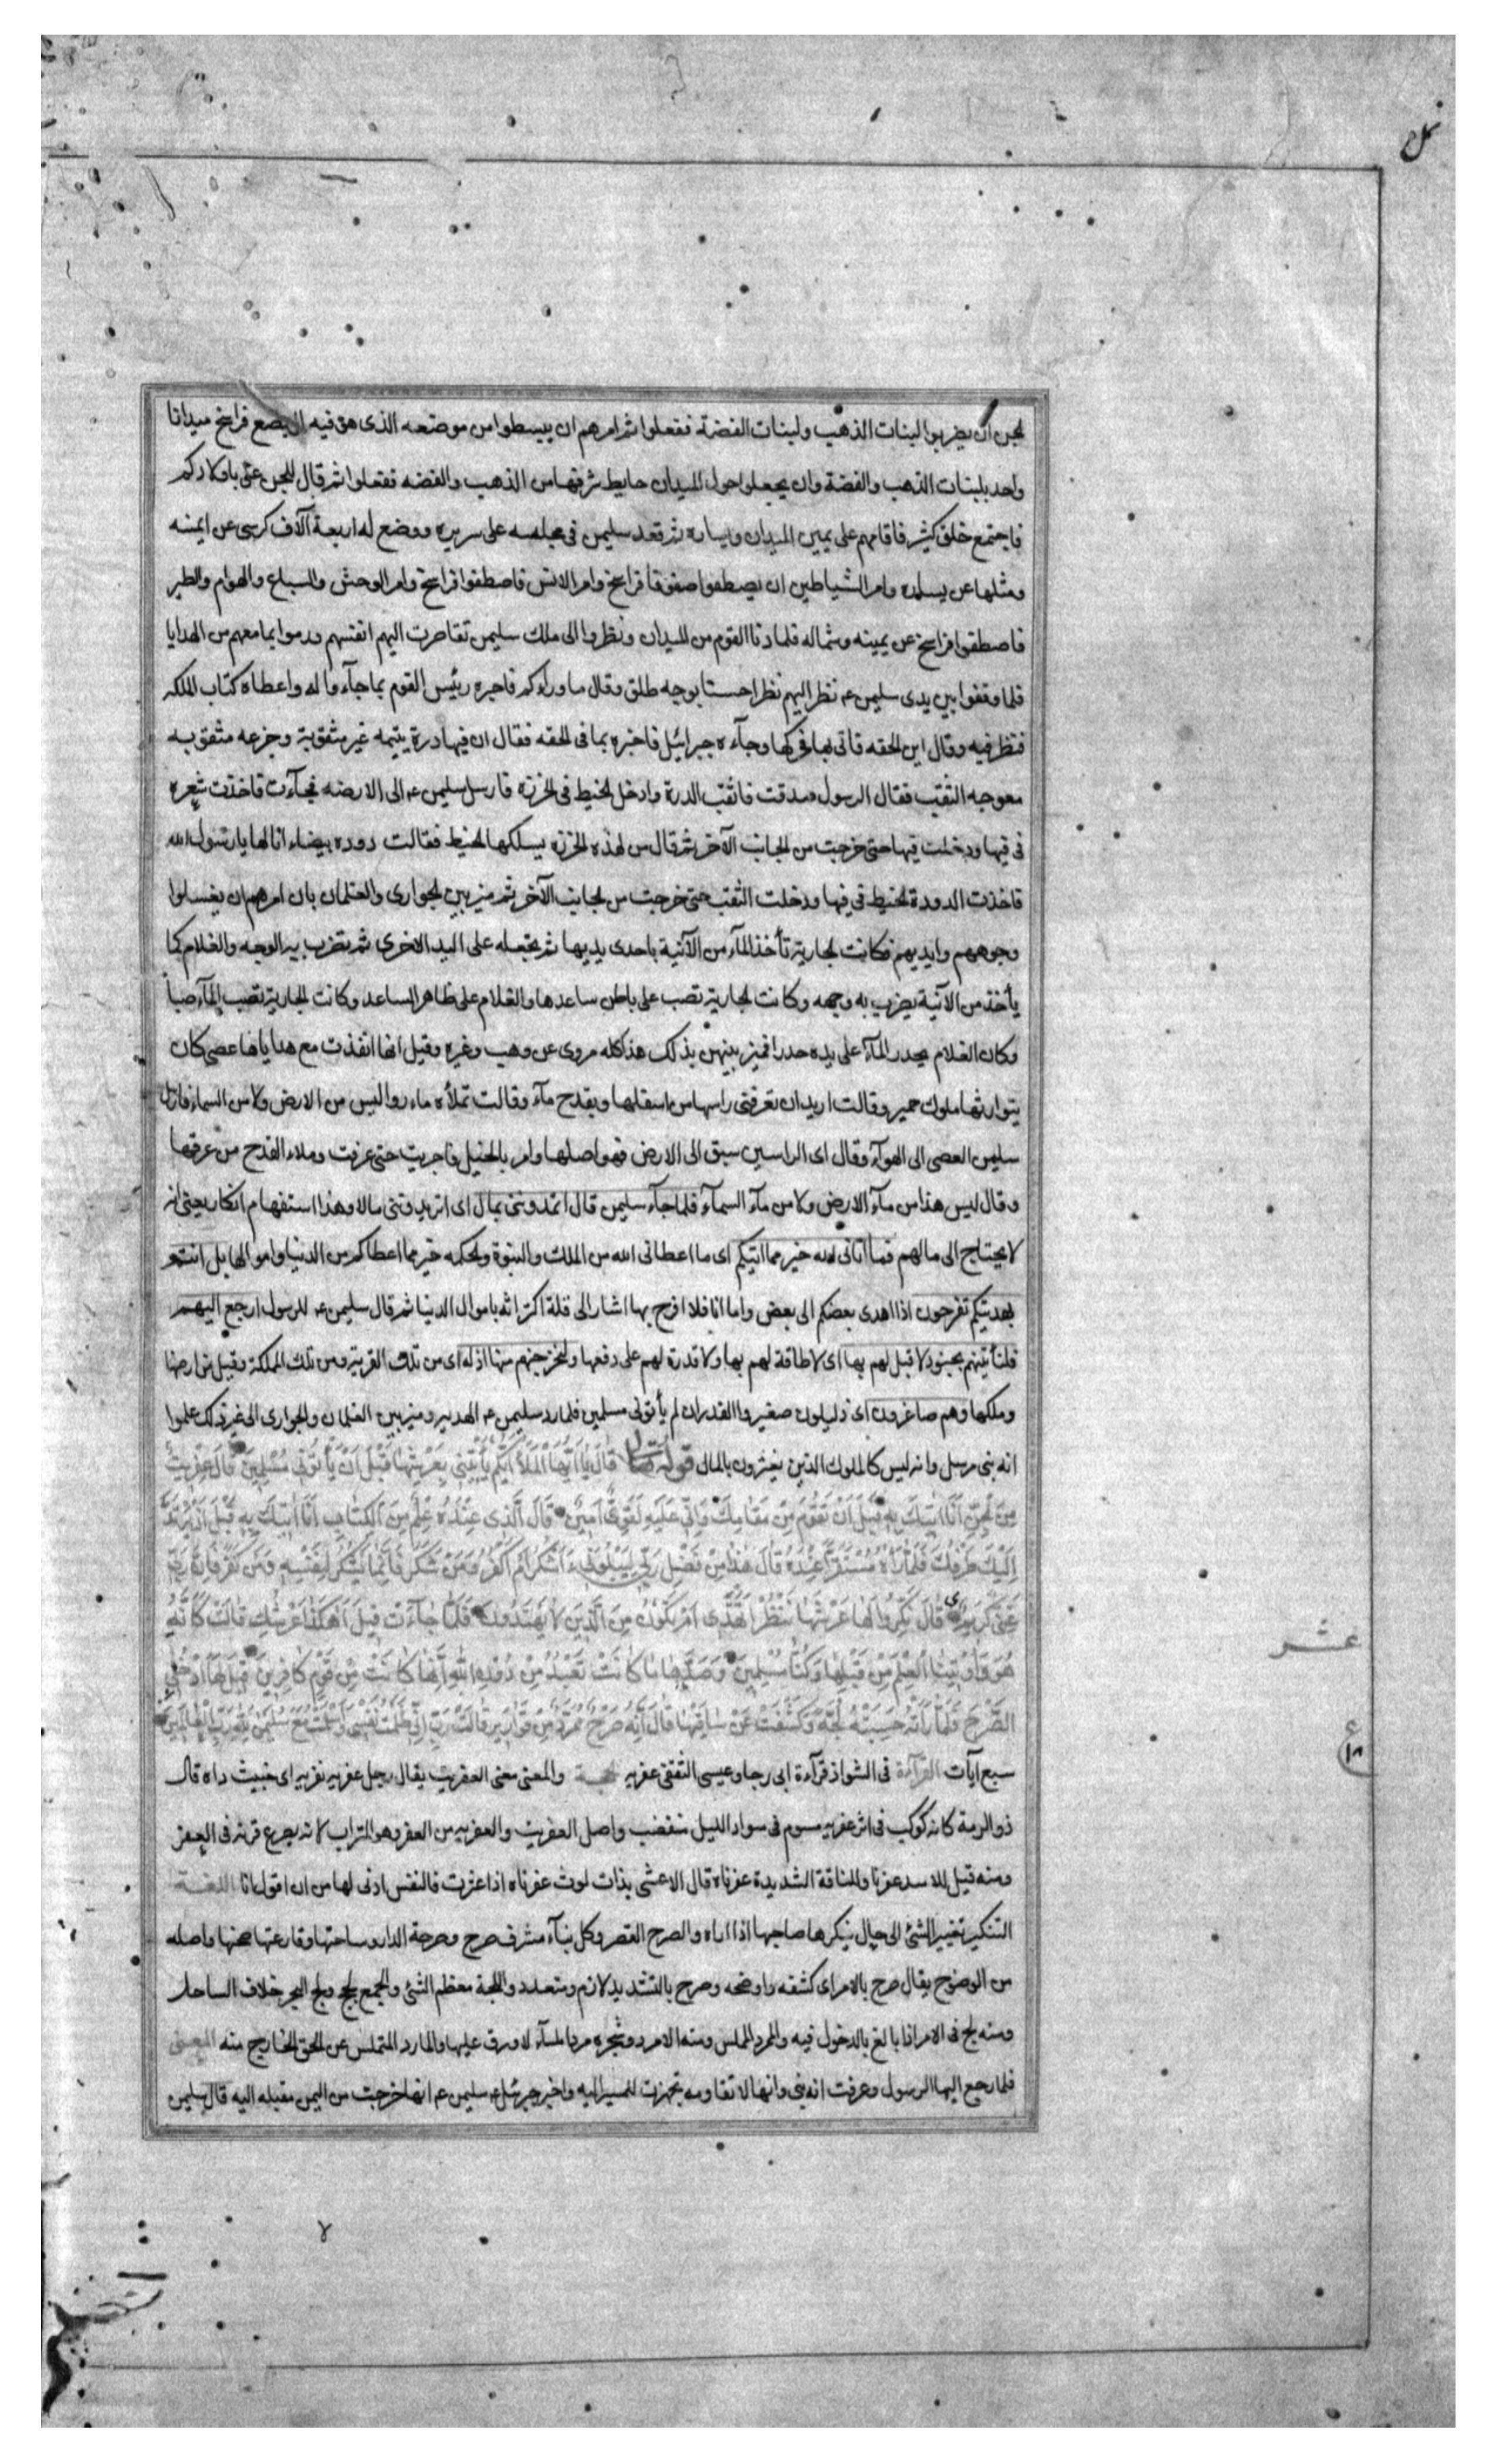 نمل
لجن ان يضربوا لبنات الذهب ولبنات الفضة ففعلوا ثم امرهم ان يبسطوا من موضعه الذى هو فيه الى بضع فراسخ ميدانا
واحد بلبنات الذهب والفضة وان يجعلوا حول الميدان حايط شرفها من الذهب والفضه ففعلوا ثم قال للجن على باولادكم
فاجتمع خلق كثير فاقامهم على يمين الميدان ويساره ثم قعد سليمن فى مجلسه على سريره ووضع له اربعة آلاف كرسى عن ايمنه
ومثلها عن يساره وامر الشياطين ان يصطفوا صفوفا فراسخ وامر الانس فاصطفوا فراسخ وامر الوحش والسباع والهوام والطير
فاصطفوا فراسخ عن يمينه وشماله فلما دنا القوم من الميدان ونظروا الى ملك سليمن تقاصرت اليهم انفسهم ورموا بما معهم من الهدايا
فلما وقفوا بين يدى سليمن عم نظر اليهم نظرا حسنا بوجه طلق وقال ما وراءكم فاخبره رئيس القوم بما جآءوا له واعطاه كتاب الملكه
فنظر فيه وقال اين الحقه فاتى بها فحركها وجآءه جبرائيل فاخبره بما فى الحقه فقال ان فيها درة يتيمه غير مثقوبة وجزعه مثقوبه
معوجه الثقب فقال الرسول صدقت فاثقب الدرة وادخل الخيط فى الخرزه فارسل سليمن عم الى الارضه فجآءت فاخذت شعره
فى فيها ودخلت فيها حتى خرجت من الجانب الآخر ثم قال من لهذه الخرزه يسلكها الخيط فقالت دوده بيضاء انا لها يا رسول الله
فاخذت الدودة الخيط فى فيها ودخلت الثقب حتى خرجت من الجانب الآخر ثم ميز بين الجوارى والغلمان بان امرهم ان يغسلوا
وجوههم وايديهم فكانت الجارية تأخذ المآء من الآنية باحدى يديها ثم تجعله على اليد الاخرى ثم تضرب به الوجه والغلام كما
يأخذ من الآنية يضرب به وجهه وكانت الجارية تصب على باطن ساعدها والغلام على ظاهر الساعد وكانت الجارية تصب المآء صبا
وكان الغلام يحدر المآء على يده حدرا فميز بينهن بذلك هذا كله مروى عن وهب وغيره وقيل انها انفذت مع هداياها عصى كان
يتوارثها ملوك حمير وقالت اريد ان تعرفنى راسها من اسفلها وبقدح مآء وقالت تملأه ماء رواليس من الارض ولا من السماء فارسل
سليمن العصى الى الهوآء وقال اى الراسين سبق الى الارض فهو اصلها وامر بالخيل فاجريت حتى عرقت وملاء القدح من عرقها
وقال ليس هذا من مآء الارض ولا من مآء السمآء فلما جآء سليمن قال اتمدوننى بمال اى اتريدوننى مالا وهذا استفهام انكار يعنى انه
لا يحتاج الى مالهم فما اتانى الله خير مما اتيكم اى ما اعطانى الله من الملك والنبوة والحكمه خير مما اعطاكم من الدنيا واموالها بل انتم
بهديتكم تفرحون اذا اهدى بعضكم الى بعض واما انا فلا افرح بها اشار الى قلة اكتراثه باموال الدنيا ثم قال سليمن عم للرسول ارجع اليهم
فلنأتينهم بجنود لا قبل لهم بها اى لا طاقة لهم بها ولا قدرة لهم على دفعها ولنخرجنهم منها اذله اى من تلك القرية ومن تلك المملكة وقيل من ارضها
وملكها وهم صاغرون اى ذليلون صغيروا القدر ان لم يأتونى مسلمين فلما رد سليمن عم الهديه وميز بين الغلمان والجوارى الى غير ذلك علموا
انه نبى مرسل وانه ليس كالملوك الذين يغترون بالمال قوله تعالى قَالَ يَا أَيُّهَا الْمَلَأُ أَيُّكُمْ يَأْتِينِى بِعَرْشِهَا قَبْلَ أَنْ يَأْتُونِى مُسْلِمِينَ قَالَ عِفْرِيتٌ
مِنَ الْجِنِّ أَنَا اتِيكَ بِهِ قَبْلَ أَنْ تَقُومَ مِنْ مَقَامِكَ وَإِنِّى عَلَيْهِ لَقَوِىٌّ أَمِينٌ قَالَ الَّذِى عِنْدَهُ عِلْمٌ مِنَ الْكِتَابِ أَنَا اتِيكَ بِهِ قَبْلَ أَنْ يَرْتَدَّ
إِلَيْكَ طَرْفُكَ فَلَمَّا رَآهُ مُسْتَقِرًّا عِنْدَهُ قَالَ هٰذَا مِنْ فَضْلِ رَبِّى لِيَبْلُوَنِى ءَأَشْكُرُ أَمْ أَكْفُرُ وَمَنْ شَكَرَ فَإِنَّمَا يَشْكُرُ لِنَفْسِهِ وَمَنْ كَفَرَ فَإِنَّ رَبِّى
غَنِىٌّ كَرِيمٌ قَالَ نَكِّرُوا لَهَا عَرْشَهَا نَنْظُرْ أَتَهْتَدِى أَمْ تَكُونُ مِنَ الَّذِينَ لَا يَهْتَدُونَ فَلَمَّا جَآءَتْ قِيلَ أَهٰكَذَا عَرْشُكِ قَالَتْ كَأَنَّهُ
هُوَ وَأُوتِينَا الْعِلْمَ مِنْ قَبْلِهَا وَكُنَّا مُسْلِمِينَ وَصَدَّهَا مَا كَانَتْ تَعْبُدُ مِنْ دُونِ اللهِ إِنَّهَا كَانَتْ مِنْ قَوْمٍ كَافِرِينَ قِيلَ لَهَا ادْخُلِى
الصَّرْحَ فَلَمَّا رَأَتْهُ حَسِبَتْهُ لُجَّةً وَكَشَفَتْ عَنْ سَاقَيْهَا قَالَ إِنَّهُ صَرْحٌ مُمَرَّدٌ مِنْ قَوَارِيرَ قَالَتْ رَبِّ إِنِّى ظَلَمْتُ نَفْسِى وَأَسْلَمْتُ مَعَ سُلَيْمٰنَ لِلّٰهِ رَبِّ الْعَالَمِينَ
سبع آيات القرآءة فى الشواذ قرآءة ابى رجا وعيسى الثقفى عفريه الحجة والمعنى معنى العفريت يقال رجل عفريه نفريه اى خبيث داه قال
ذو الرمة كانه كوكب فى اثر عفريه مسوم فى سواد الليل منقضب واصل العفريت والعفريه من العفر وهو التراب لانه يصرع قرنه فى العفر
ومنه قيل للاسد عفرنا وللناقة الشديدة عفرناه قال الاعشى بذات لوث عفرناه اذا عثرت فالنفس ادنى لها من ان اقول لعا اللغة
التنكير تغيير الشئ الى حال ينكرها صاحبها اذا اراه والصرح القصر وكل بنآء مشرف صرح وصرحة الدار وساحتها وقارعتها صحنها واصله
من الوضوح يقال صرح بالامر اى كشفه واوضحه وصرح بالتشديد لازم ومتعدد واللجة معظم الشئ والجمع لجج ولج البحر خلاف الساحل
ومنه لج فى الامر اذا بالغ بالدخول فيه والممرد المملس ومنه الامرد وشجره مردا ملسآء لا ورق عليها والمارد المتملس عن الحق الخارج منه المعنى
فلما رجع اليها الرسول وعرفت انه نبى وانها لا تقاومه تجهزت للمسير اليه واخبر جبرئيل عم سليمن عم انها خرجت من اليمن مقبله اليه قال سليمن
عشر